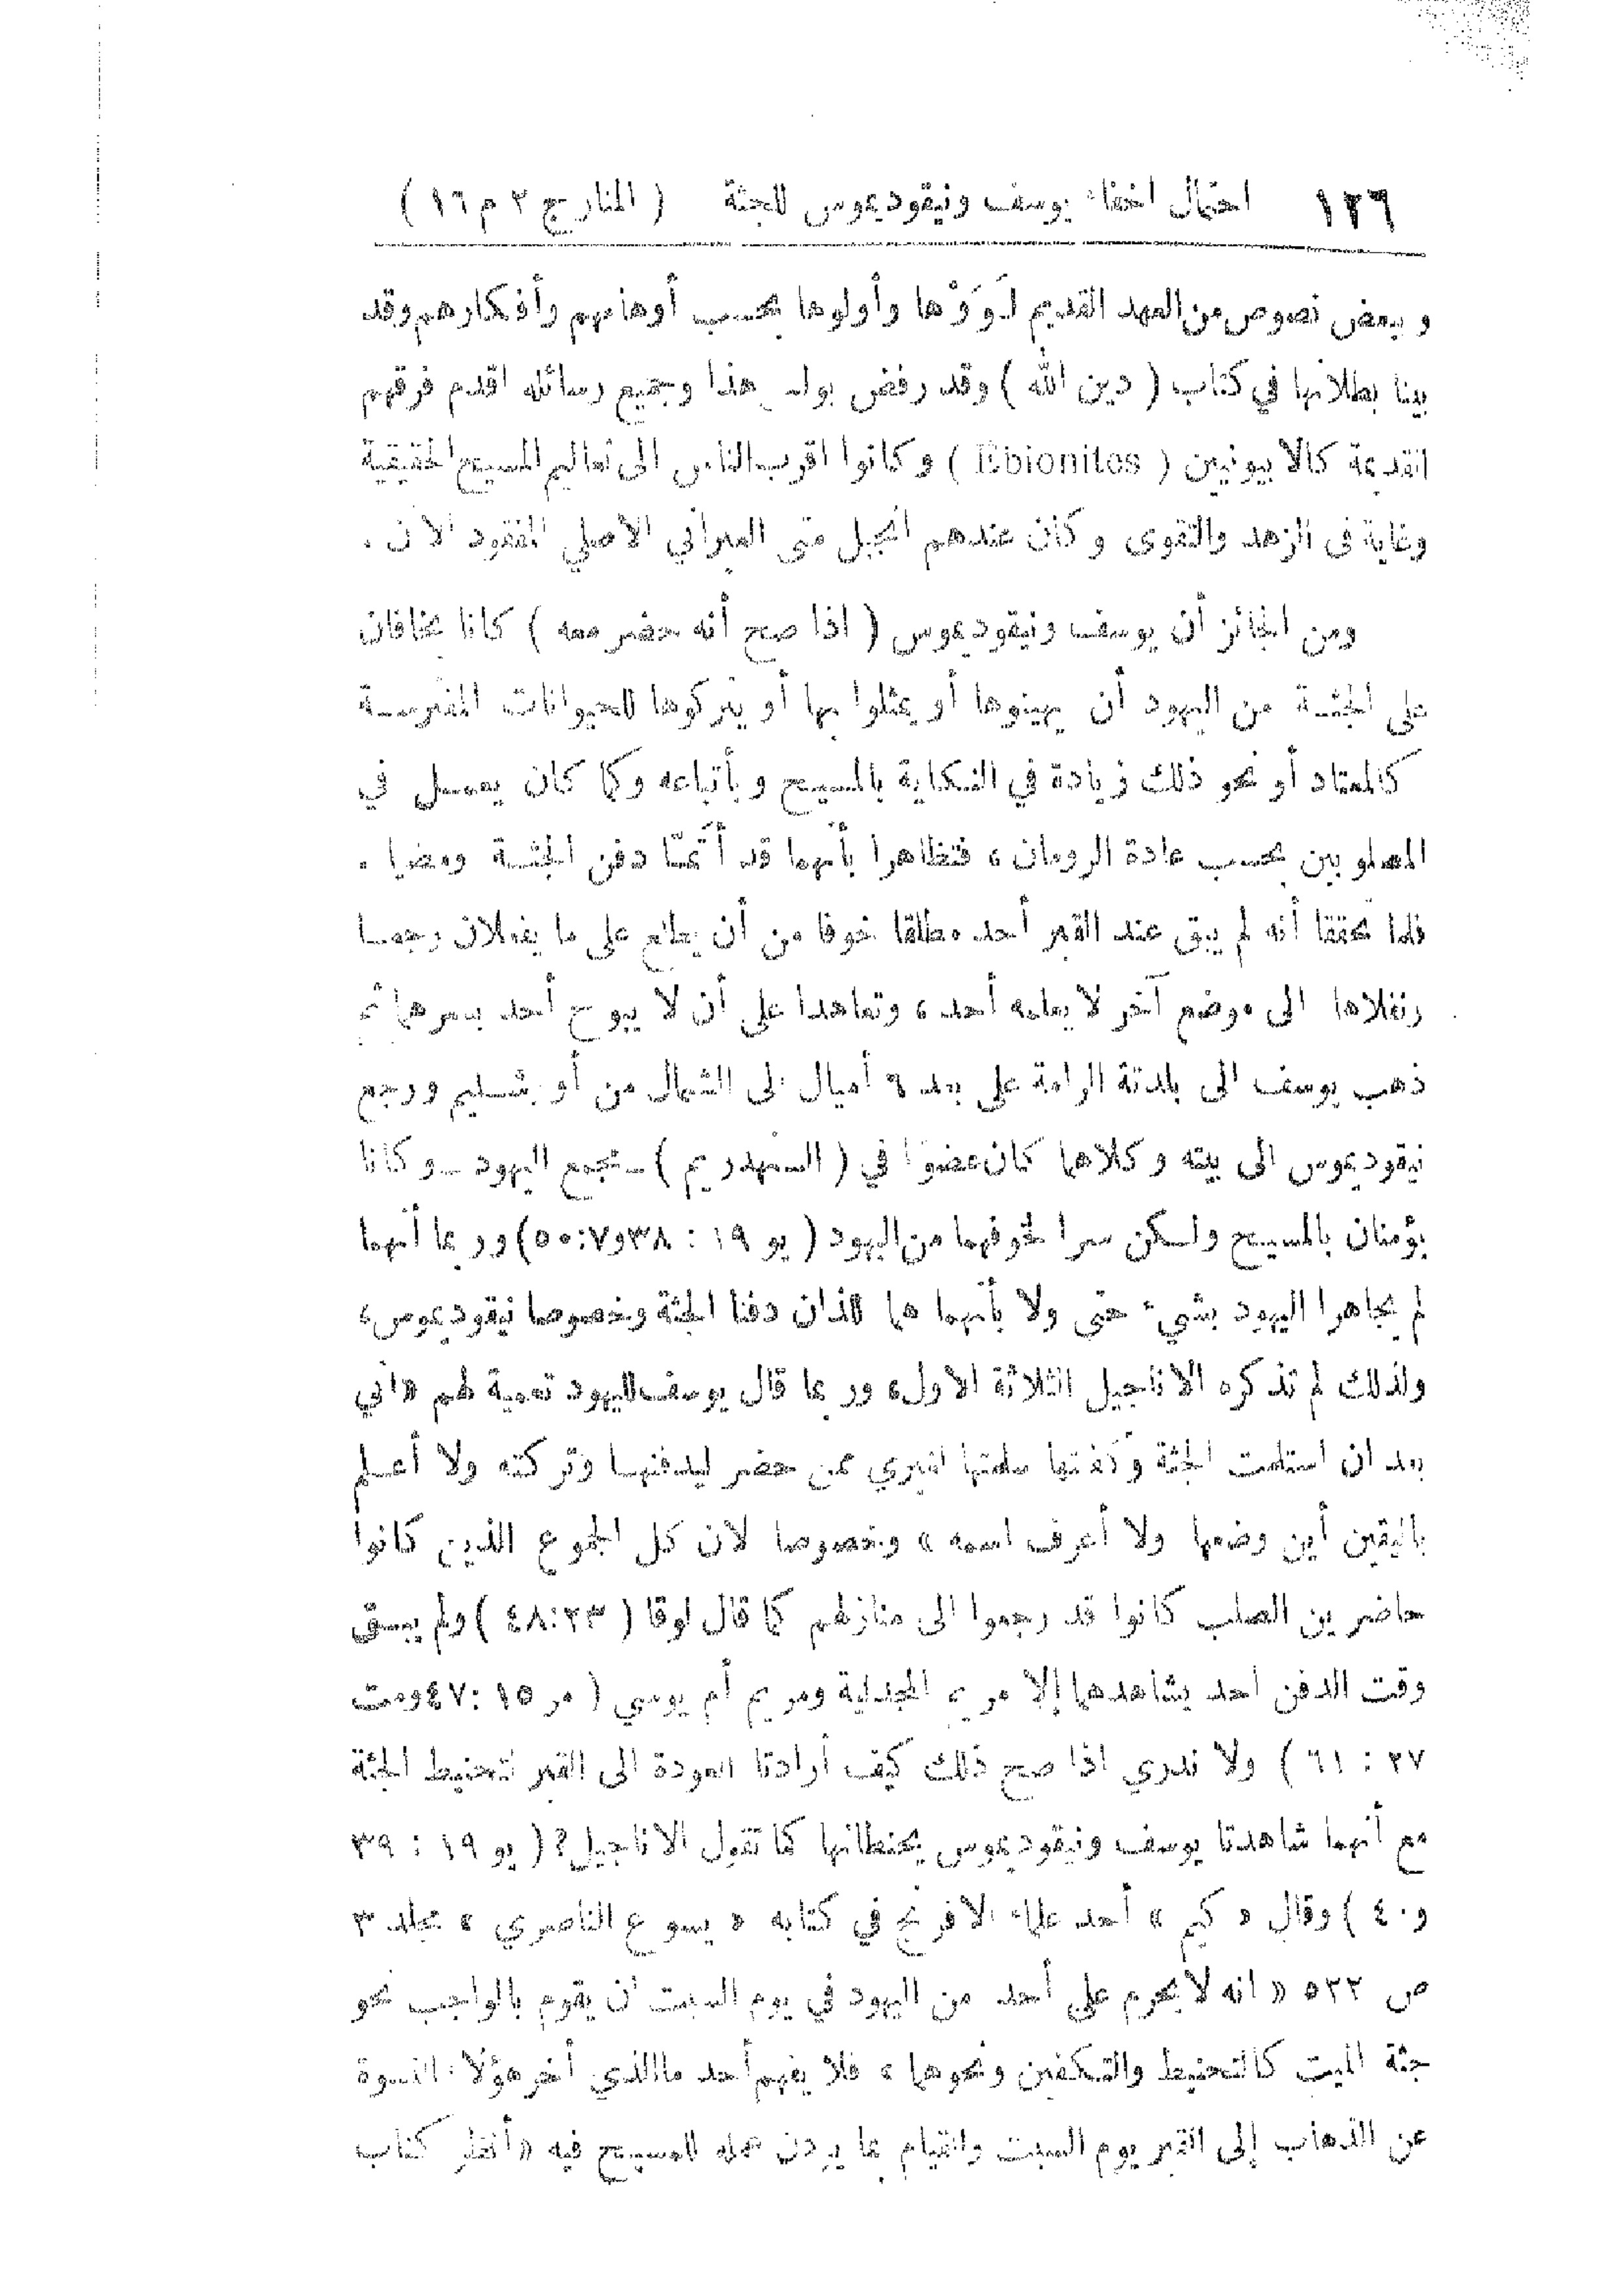 ١٢٦ احتمال اخفاء يوسف ونيقوديموس للجثة ( المنار ج ٢ م ١٦ )
وبعض نصوص من العهد القديم لَوَوْها وأولوها بحسب أوهامهم وأفكارهم وقد
بينا بطلانها في كتاب ( دين الله ) وقد رفض بولس هذا وجميع رسائله اقدم فرقهم
القديمة كالابيونيين ( Ebionites ) وكانوا اقرب الناس الى تعاليم المسيح الحقيقية
وغاية في الزهد والتقوى وكان عندهم انجيل متى العبراني الاصلي المفقود الآن .
ومن الجائز أن يوسف ونيقوديموس ( اذا صح أنه حضر معه ) كانا يخافان
على الجثة من اليهود أن يهينوها أو يمثلوا بها أو يتركوها للحيوانات المفترسة
كالمعتاد أو نحو ذلك زيادة في النكاية بالمسيح وبأتباعه وكما كان يعمل في
المصلوبين بحسب عادة الرومان ، فتظاهرا بأنهما قد أتمّا دفن الجثة ومضيا .
فلما تحققا أنه لم يبق عند القبر أحد مطلقا خوفا من أن يطلع على ما يفعلان رجعا
ونقلاها الى موضع آخر لا يعلمه أحد ، وتعاهدا على أن لا يبوح أحد بسرهما ثم
ذهب يوسف الى بلدته الرامة على بعد ٦ أميال الى الشمال من أورشليم ورجع
نيقوديموس الى بيته وكلاهما كان عضوًا في ( السنهدريم ) ــ مجمع اليهود ــ وكانا
يؤمنان بالمسيح ولكن سرا لخوفهما من اليهود ( يو ١٩ : ٣٨ و٧:٥٠) وربما أنهما
لم يجاهرا اليهود بشيء حتى ولا بأنهما هما اللذان دفنا الجثة وخصوصا نيقوديموس ،
ولذلك لم تذكره الاناجيل الثلاثة الاول ، وربما قال يوسف لليهود تعمية لهم « اني
بعد ان استلمت الجثة وكفنتها سلمتها لغيري ممن حضر ليدفنها وتركته ولا أعلم
باليقين أين وضعها ولا أعرف اسمه » وخصوصا لان كل الجموع الذين كانوا
حاضرين الصلب كانوا قد رجعوا الى منازلهم كما قال لوقا ( ٢٣:٤٨ ) ولم يبق
وقت الدفن احد يشاهدهما إلا مريم المجدلية ومريم أم يوسي ( مر ١٥ :٤٧ ومت
٢٧ : ٦١ ) ولا ندري اذا صح ذلك كيف أرادتا العودة الى القبر لتحنيط الجثة
مع أنهما شاهدتا يوسف ونيقوديموس يحنطانها كما تقول الاناجيل؟ ( يو ١٩ : ٣٩
و٤٠ ) وقال « كيم » أحد علماء الافرنج في كتابه « يسوع الناصري » مجلد ٣
ص ٥٢٢ « انه لا يحرم على أحد من اليهود في يوم السبت أن يقوم بالواجب نحو
جثة الميت كالتحنيط والتكفين ونحوهما » فلا يفهم أحد ما الذي أخر هؤلاء النسوة
عن الذهاب إلى القبر يوم السبت والقيام بما يردن عمله للمسيح فيه « أنظر كتاب